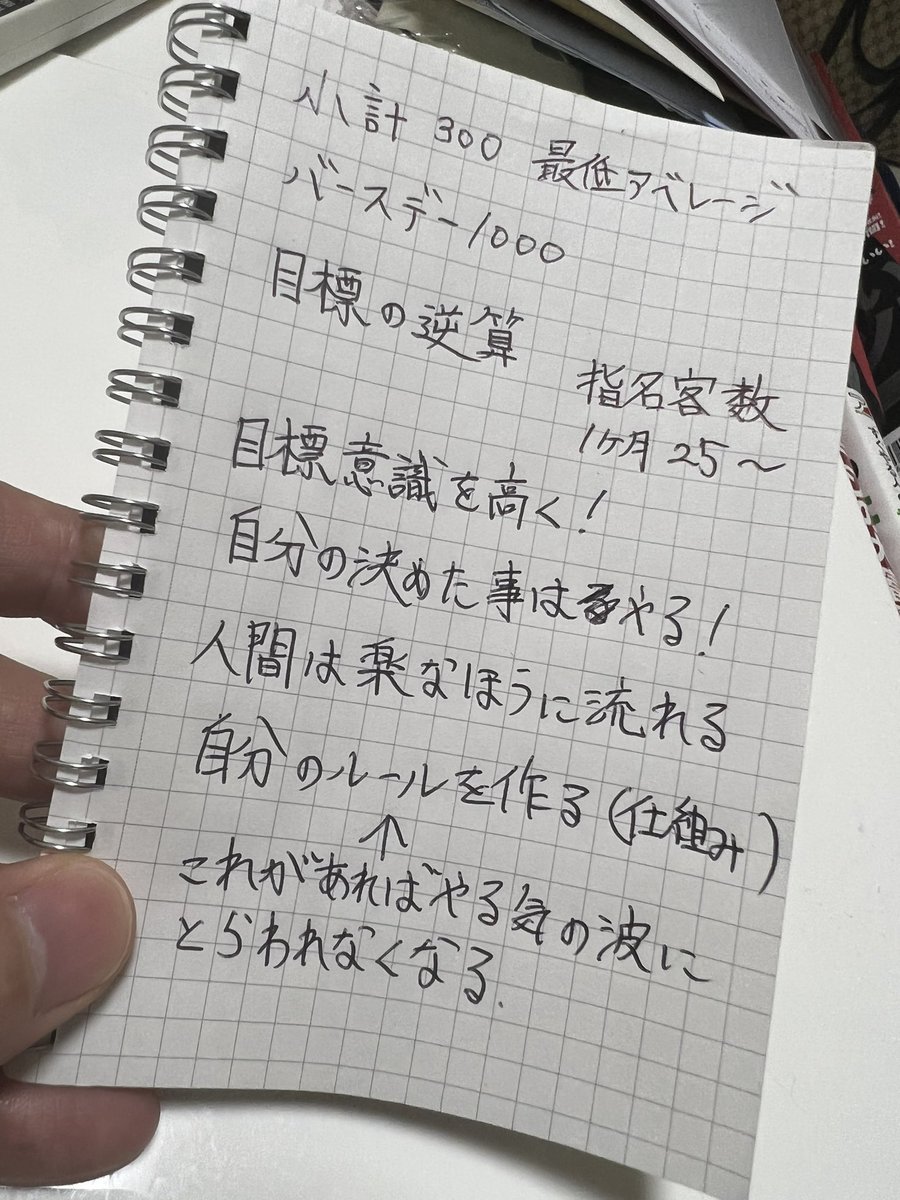 小計 300 最低アベレージ
バースデー1000
目標の逆算
指名客数
1ヶ月 25〜
目標意識を高く!
自分の決めた事はやる!
人間は楽なほうに流れる
自分のルールを作る(仕組み)
↑
これがあればやる気の波に
とらわれなくなる.